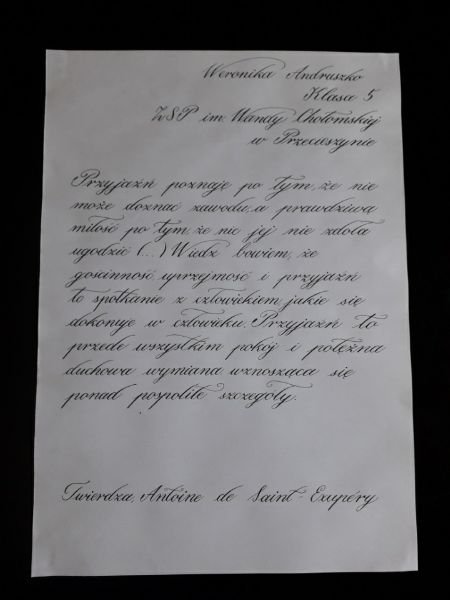 Weronika Andruszko
Klasa 5
ZSP im. Wandy Chotomskiej
w Przecieszynie
Przyjaźń poznaję po tym, że nie
może doznać zawodu, a prawdziwą
miłość po tym, że nic jej nie zdoła
ugodzić (...) Wiedz bowiem, że
gościnność, uprzejmość i przyjaźń
to spotkanie z człowiekiem, jakie się
dokonuje w człowieku. Przyjaźń to
przede wszystkim pokój i potężna
duchowa wymiana wznosząca się
ponad pospolite szczegóły.
Twierdza, Antoine de Saint-Exupéry